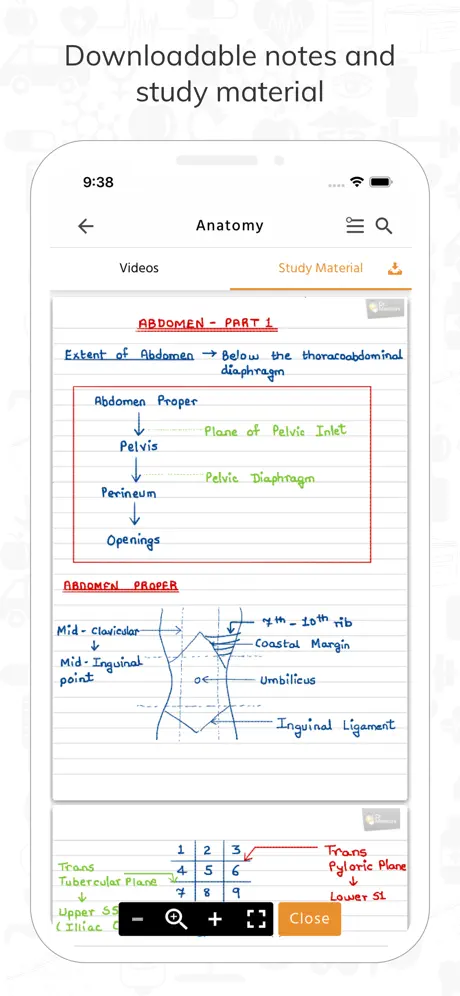 Downloadable notes and
study material
9:38
Anatomy
Videos
Study Material
ABDOMEN - PART 1
Extent of Abdomen → Below the thoracoabdominal
diaphragm
Abdomen Proper
Plane of Pelvic Inlet
Pelvis
Pelvic Diaphragm
Perineum
Openings
ABDOMEN PROPER
Mid-Clavicular
Mid-Inguinal
point
7th - 10th rib
Coastal Margin
Umbilicus
Inguinal Ligament
1 2 3
4 5 6
7 8 9
Trans
Tubercular Plane
Upper
(Illiac
Trans
Pyloric Plane
Lower S1
Close